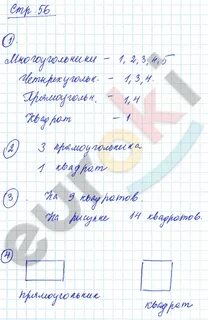 Стр 56
①
Многоугольники - 1, 2, 3, 4, 5
Четырехугольн. - 1, 3, 4.
Прямоугольн. - 1, 4
Квадрат - 1
② 3 прямоугольника
1 квадрат
③ На 9 квадратов.
На рисунке 14 квадратов.
④
прямоугольник
квадрат
euroki